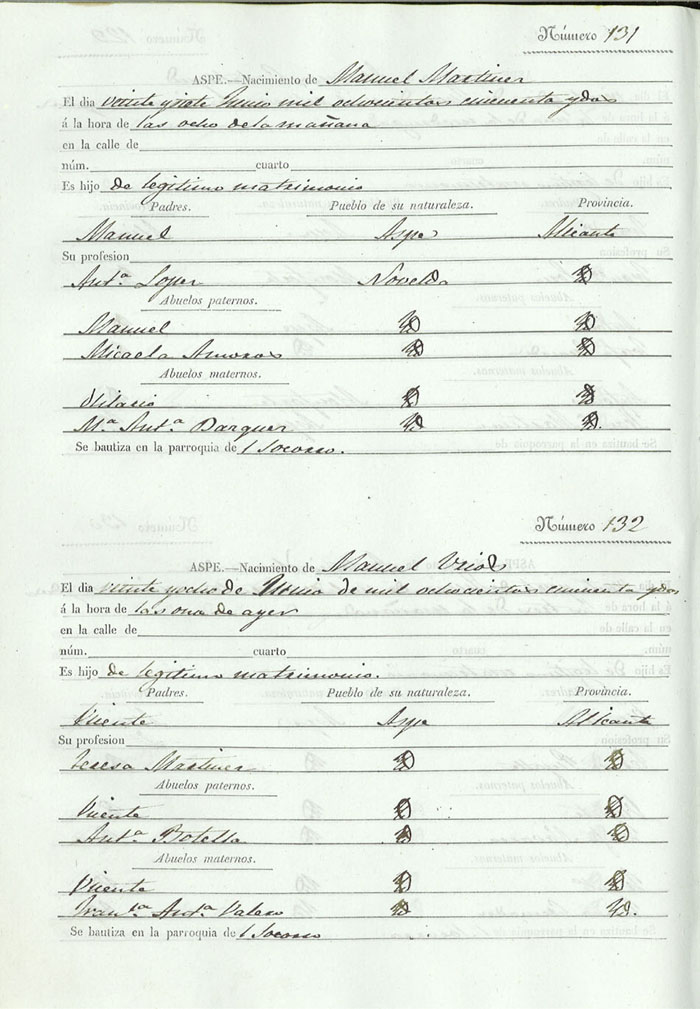 Número 131
ASPE.—Nacimiento de Manuel Martinez
El dia veinte y siete Junio mil ochocientos cincuenta y dos
á la hora de las ocho de la mañana
en la calle de
núm. cuarto
Es hijo de legitimo matrimonio
Padres. Pueblo de su naturaleza. Provincia.
Manuel Aspe Alicante
Su profesion
Antª Lopez Novelda
Abuelos paternos.
Manuel
Micaela Amoros
Abuelos maternos.
Hilario
Mª Antª
Se bautiza en la parroquia de l Socorro.
Número 132
ASPE.—Nacimiento de Manuel
El dia veinte y ocho de Junio de mil ochocientos cincuenta y dos
á la hora de las once de ayer
en la calle de
núm. cuarto
Es hijo de legitimo matrimonio.
Padres. Pueblo de su naturaleza. Provincia.
Vicente Aspe Alicante
Su profesion
Teresa Martinez
Abuelos paternos.
Vicente
Antª Botella
Abuelos maternos.
Vicente
Antª Valero
Se bautiza en la parroquia de l Socorro